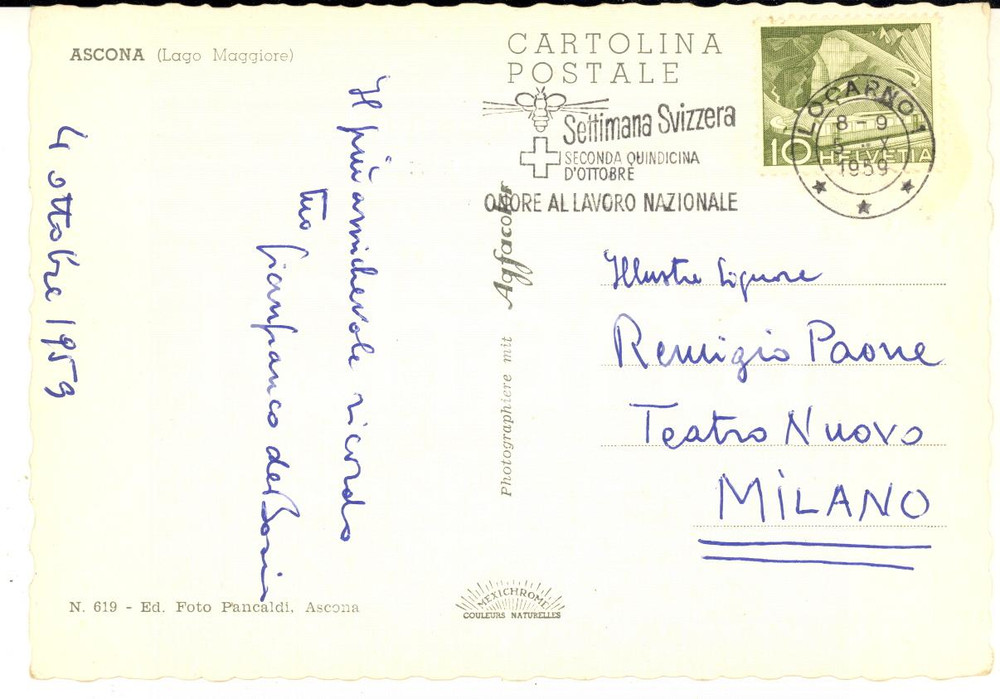 ASCONA (Lago Maggiore)
CARTOLINA
POSTALE
Settimana Svizzera
SECONDA QUINDICINA
D'OTTOBRE
ONORE AL LAVORO NAZIONALE
LOCARNO 1
8-9
5 X
1959
10 HELVETIA
4 ottobre 1959
Il più amichevole ricordo
tuo
Gianfranco de Bosio
Photographiere mit Agfacolor
Illustre Signore
Remigio Paone
Teatro Nuovo
MILANO
N. 619 - Ed. Foto Pancaldi, Ascona
MEXICHROME
COULEURS NATURELLES